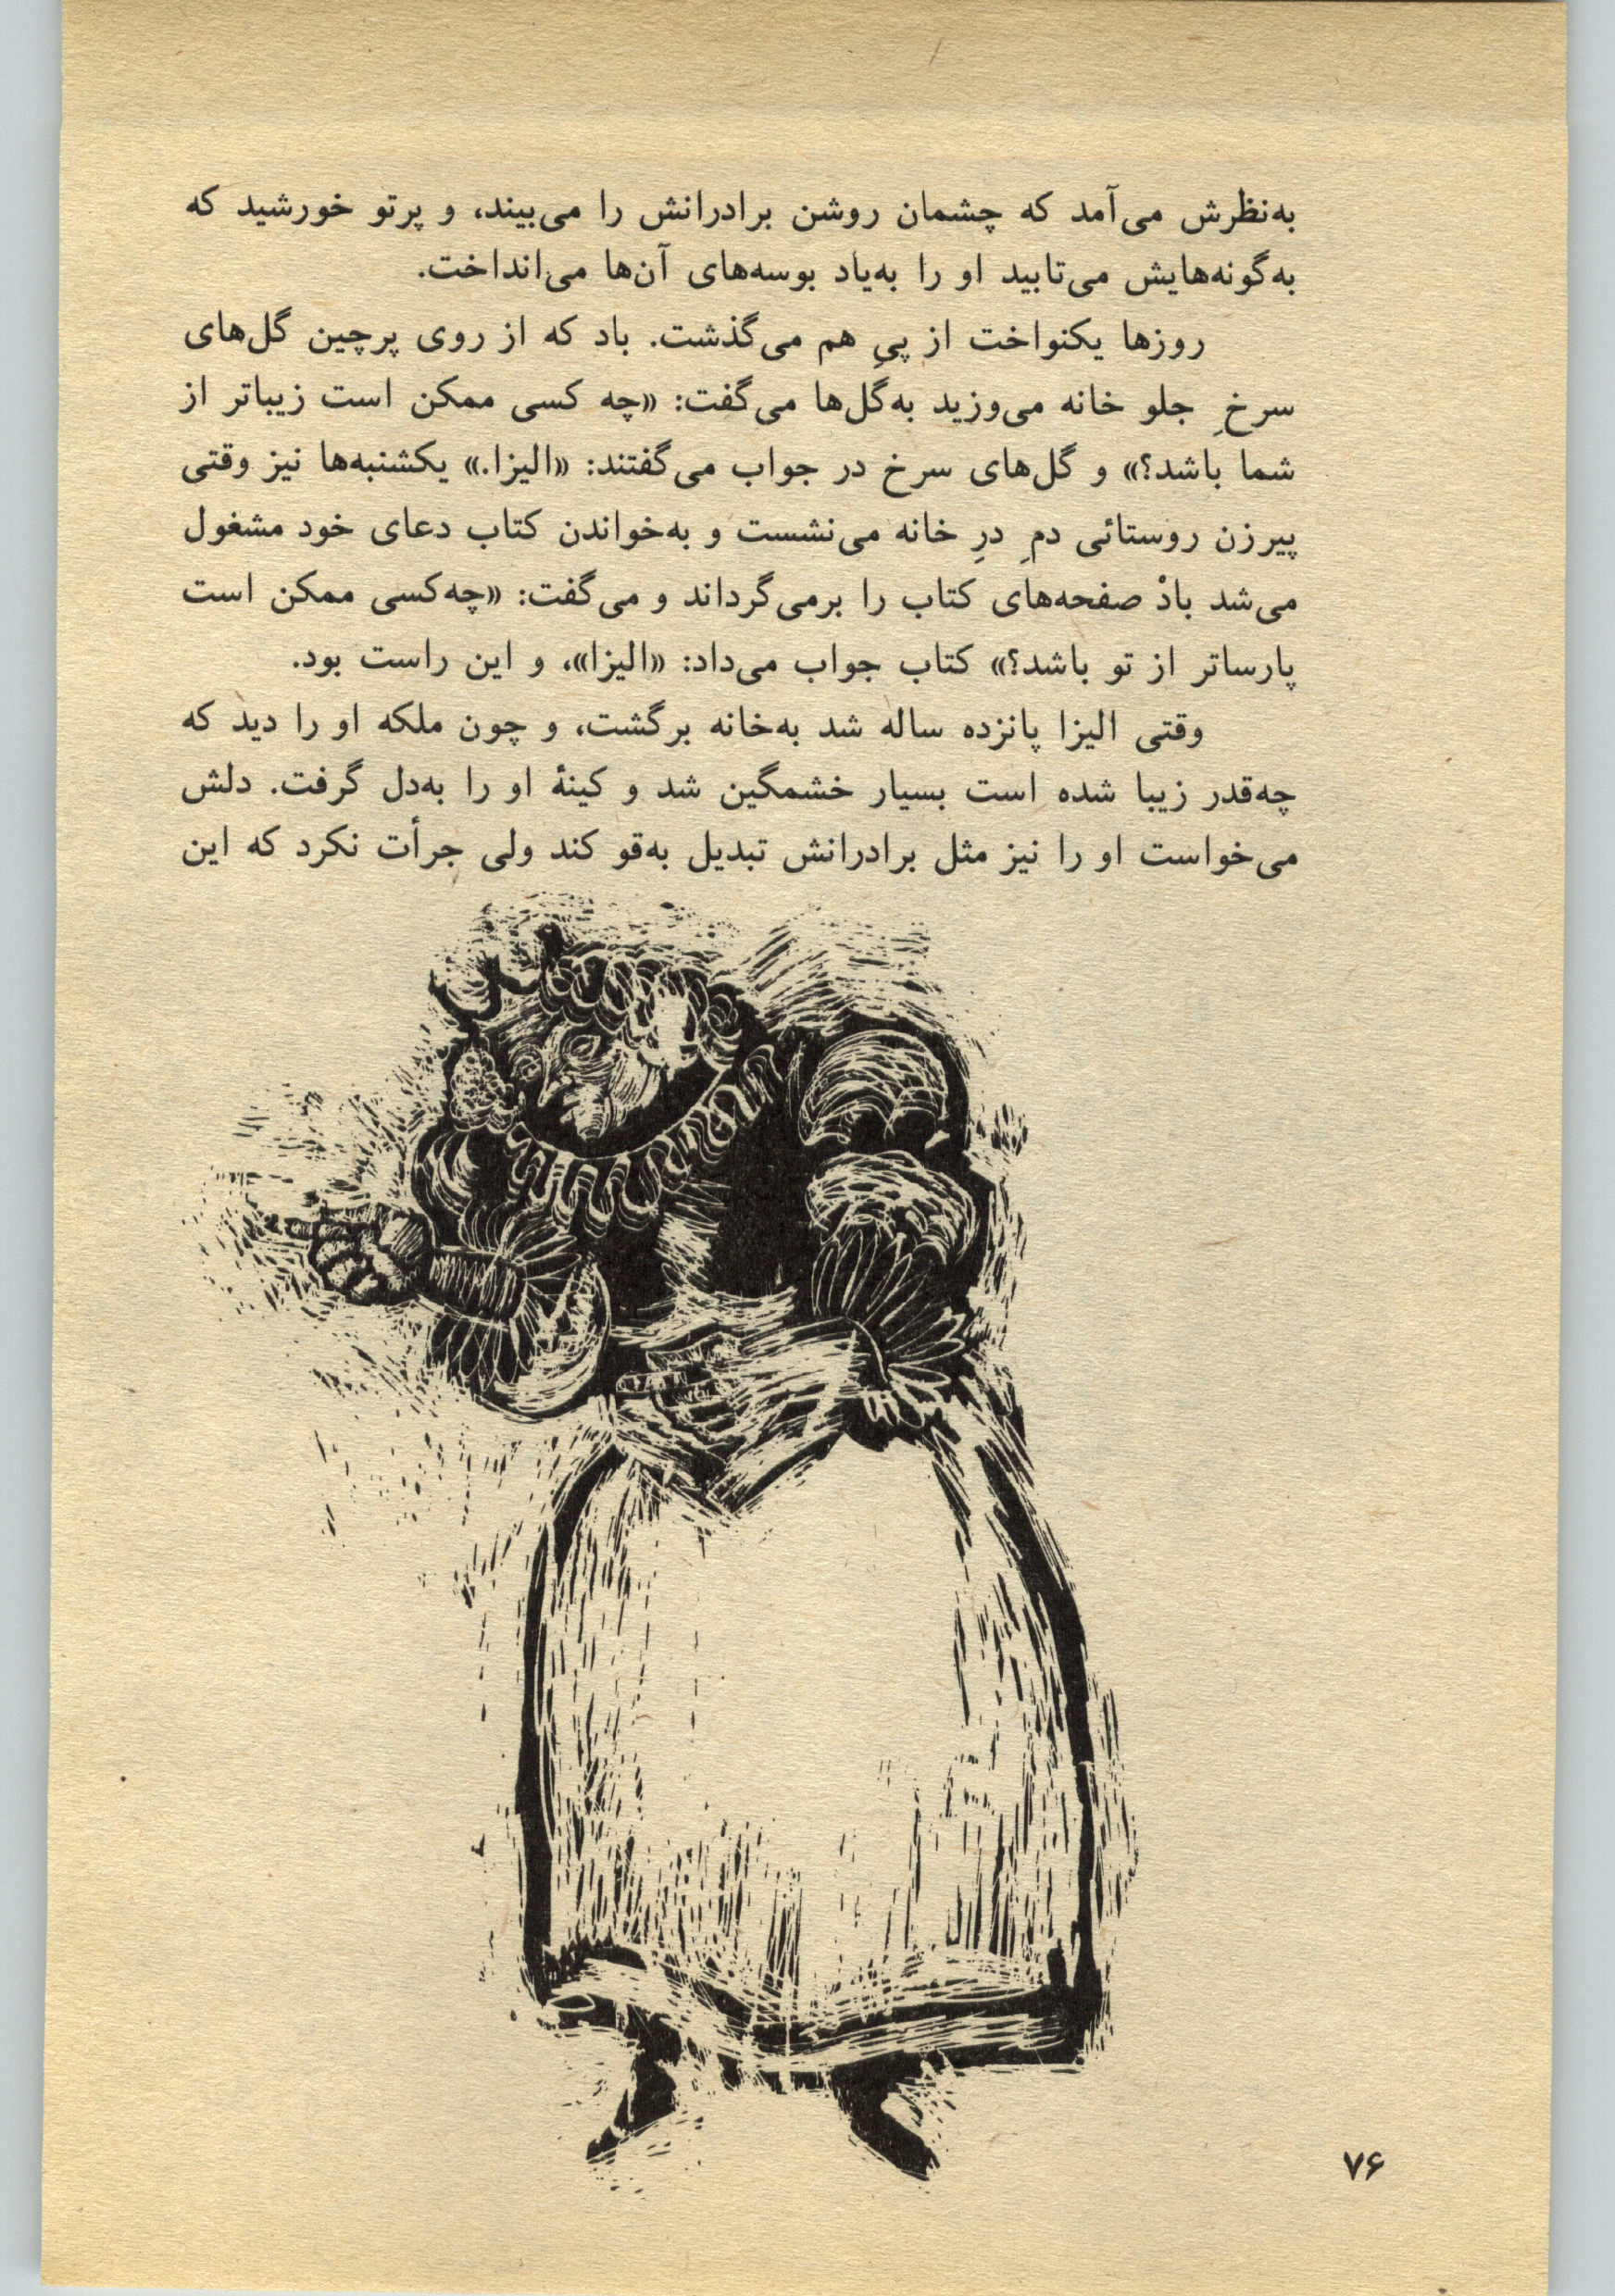 به‌نظرش می‌آمد که چشمان روشن برادرانش را می‌بیند، و پرتو خورشید که
به‌گونه‌هایش می‌تابید او را به‌یاد بوسه‌های آن‌ها می‌انداخت.
روزها یکنواخت از پیِ هم می‌گذشت. باد که از روی پرچین گل‌های
سرخِ جلو خانه می‌وزید به‌گل‌ها می‌گفت: «چه کسی ممکن است زیباتر از
شما باشد؟» و گل‌های سرخ در جواب می‌گفتند: «الیزا.» یکشنبه‌ها نیز وقتی
پیرزن روستائی دمِ درِ خانه می‌نشست و به‌خواندن کتاب دعای خود مشغول
می‌شد بادْ صفحه‌های کتاب را برمی‌گرداند و می‌گفت: «چه‌کسی ممکن است
پارساتر از تو باشد؟» کتاب جواب می‌داد: «الیزا»، و این راست بود.
وقتی الیزا پانزده ساله شد به‌خانه برگشت، و چون ملکه او را دید که
چه‌قدر زیبا شده است بسیار خشمگین شد و کینهٔ او را به‌دل گرفت. دلش
می‌خواست او را نیز مثل برادرانش تبدیل به‌قو کند ولی جرأت نکرد که این
۷۶